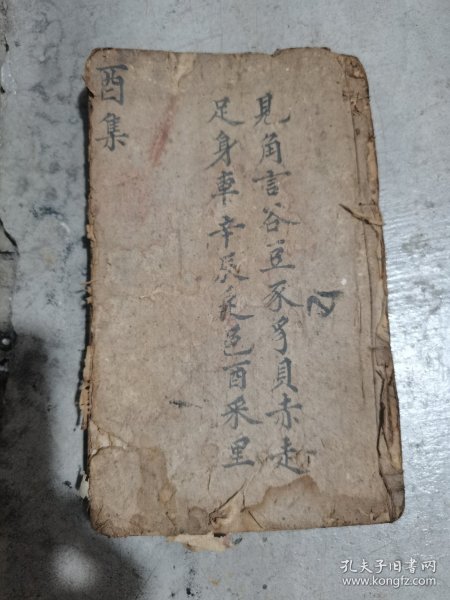 見角言谷豆豕豸貝赤走
足身車辛辰辵邑酉釆里
酉集
孔夫子旧书网
www.kongfz.com